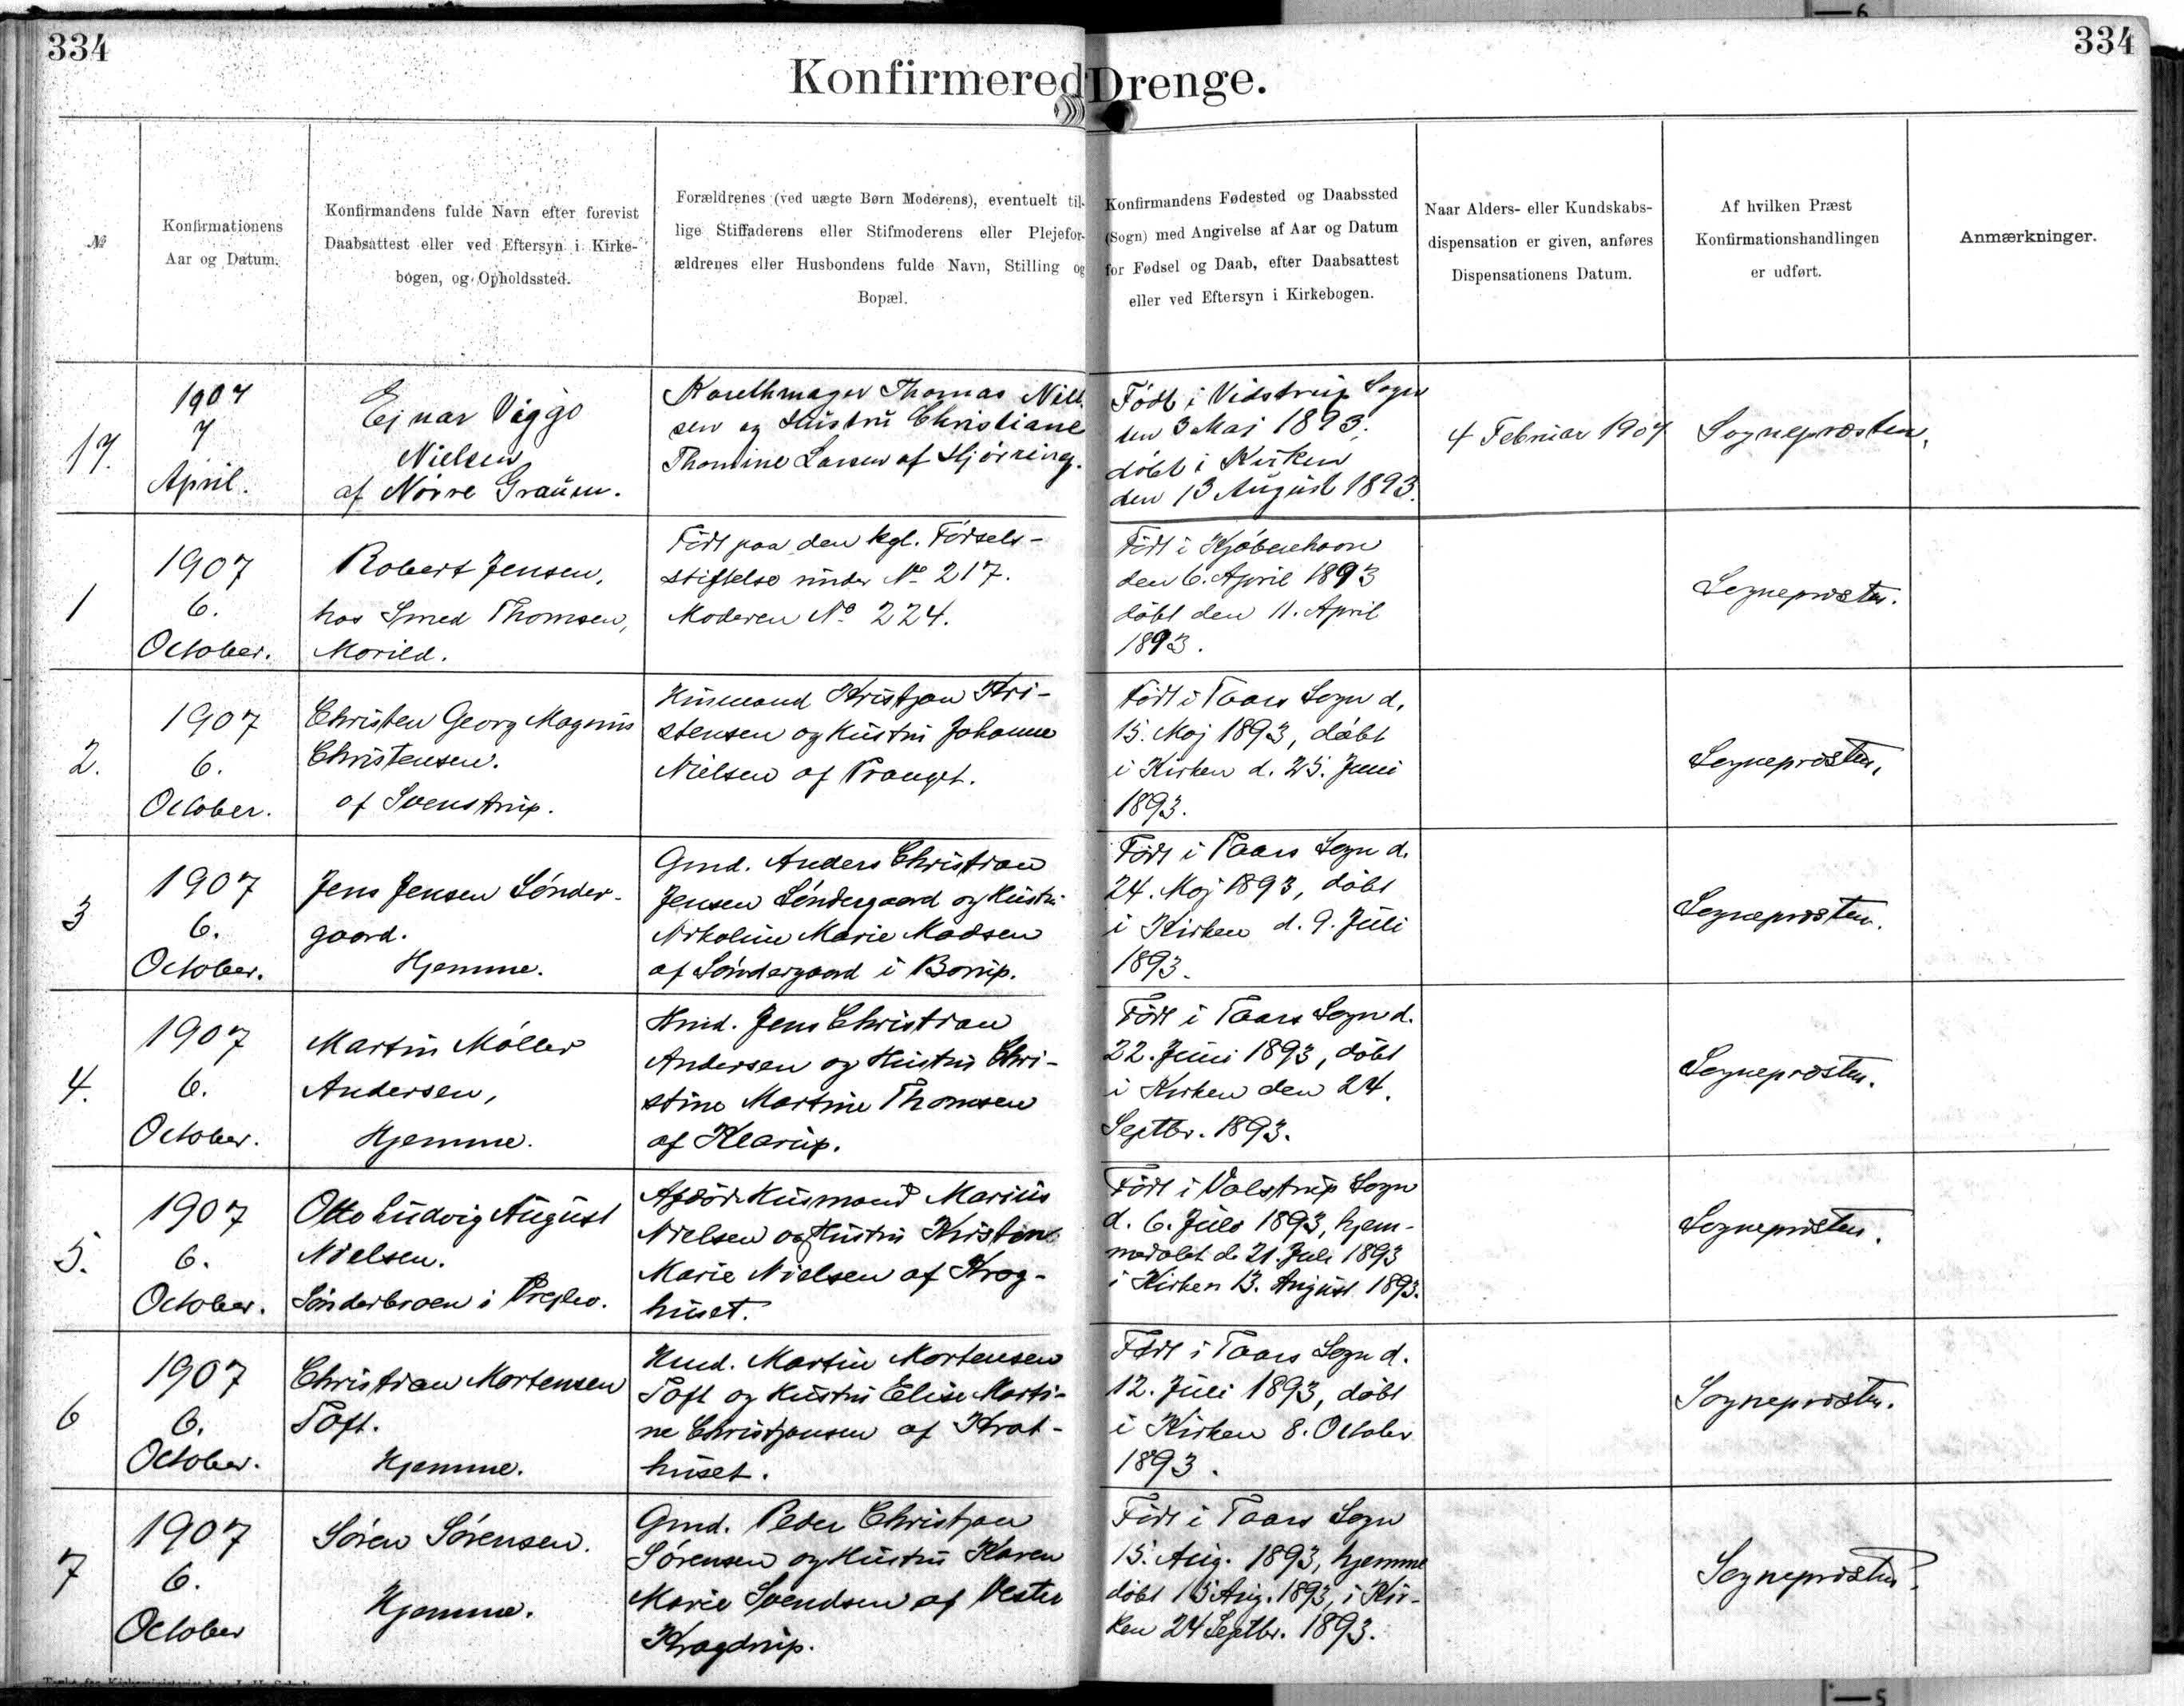 334
334
Konfirmered Drenge.
№
Konfirmationens
Aar og Datum.
Konfirmandens fulde Navn efter forevist
Daabsattest eller ved Eftersyn i Kirke-
bogen, og Opholdssted.
Forældrenes (ved uægte Børn Moderens), eventuelt til-
lige Stiffaderens eller Stifmoderens eller Plejefor-
ældrenes eller Husbondens fulde Navn, Stilling og
Bopæl.
Konfirmandens Fødested og Daabssted
(Sogn) med Angivelse af Aar og Datum
for Fødsel og Daab, efter Daabsattest
eller ved Eftersyn i Kirkebogen.
Naar Alders- eller Kundskabs-
dispensation er given, anføres
Dispensationens Datum.
Af hvilken Præst
Konfirmationshandlingen
er udført.
Anmærkninger.
17.
1907
7
April.
Ejnar Viggo
Nielsen
af Nørre Graum.
Karethmager Thomas Niel-
sen og Hustru Christiane
Thomine Larsen af Hjørring.
Født i Vidstrup Sogn
den 3 Mai 1893,
døbt i Kirken
den 13 August 1893.
4 Februar 1907
Sognepræsten.
1
1907
6.
October.
Robert Jensen,
hos Smed Thomsen,
Morild.
Født paa den kgl. Fødsels-
stiftelse under No 217.
Moderen No 224.
Født i Kjøbenhavn
den 6. April 1893
døbt den 11. April
1893.
Sognepræsten.
2.
1907
6.
October.
Christen Georg Magnus
Christensen.
af Svenstrup.
Husmand Kristjan Kri-
stensen og Hustru Johanne
Nielsen af Pranget.
Født i Taars Sogn d.
15. Maj 1893, døbt
i Kirken d. 25. Juni
1893.
Sognepræsten.
3
1907
6.
October.
Jens Jensen Sønder-
gaard.
Hjemme.
Gmd. Anders Christian
Jensen Søndergaard og Hustru
Nikoline Marie Madsen
af Søndergaard i Borup.
Født i Taars Sogn d.
24. Maj 1893, døbt
i Kirken d. 9. Juli
1893.
Sognepræsten.
4.
1907
6.
October.
Martin Møller
Andersen,
Hjemme.
Hmd. Jens Christian
Andersen og Hustru Chri-
stine Martine Thomsen
af Klarup.
Født i Taars Sogn d.
22. Juni 1893, døbt
i Kirken den 24.
Septbr. 1893.
Sognepræsten.
5.
1907
6.
October.
Otto Ludvig August
Nielsen.
Sønderbroen i
Afdød Husmand Marius
Nielsen og Hustru Kristine
Marie Nielsen af Krog-
huset.
Født i Volstrup Sogn
d. 6. Juli 1893, hjem-
medøbt d. 21. Juli 1893
i Kirken 13. August 1893.
Sognepræsten.
6
1907
6.
October.
Christian Mortensen
Toft.
Hjemme.
Hmd. Martin Mortensen
Toft og Hustru Elise Marti-
ne Christjansen af Krat-
huset.
Født i Taars Sogn d.
12. Juli 1893, døbt
i Kirken 8. October
1893.
Sognepræsten.
7
1907
6.
October
Søren Sørensen.
Hjemme.
Gmd. Peder Christjan
Sørensen og Hustru Karen
Marie Svendsen af Vester
Kragdrup.
Født i Taars Sogn
15. Aug. 1893, hjemme
døbt 15 Aug. 1893, i Kir-
ken 24 Septbr. 1893.
Sognepræsten.